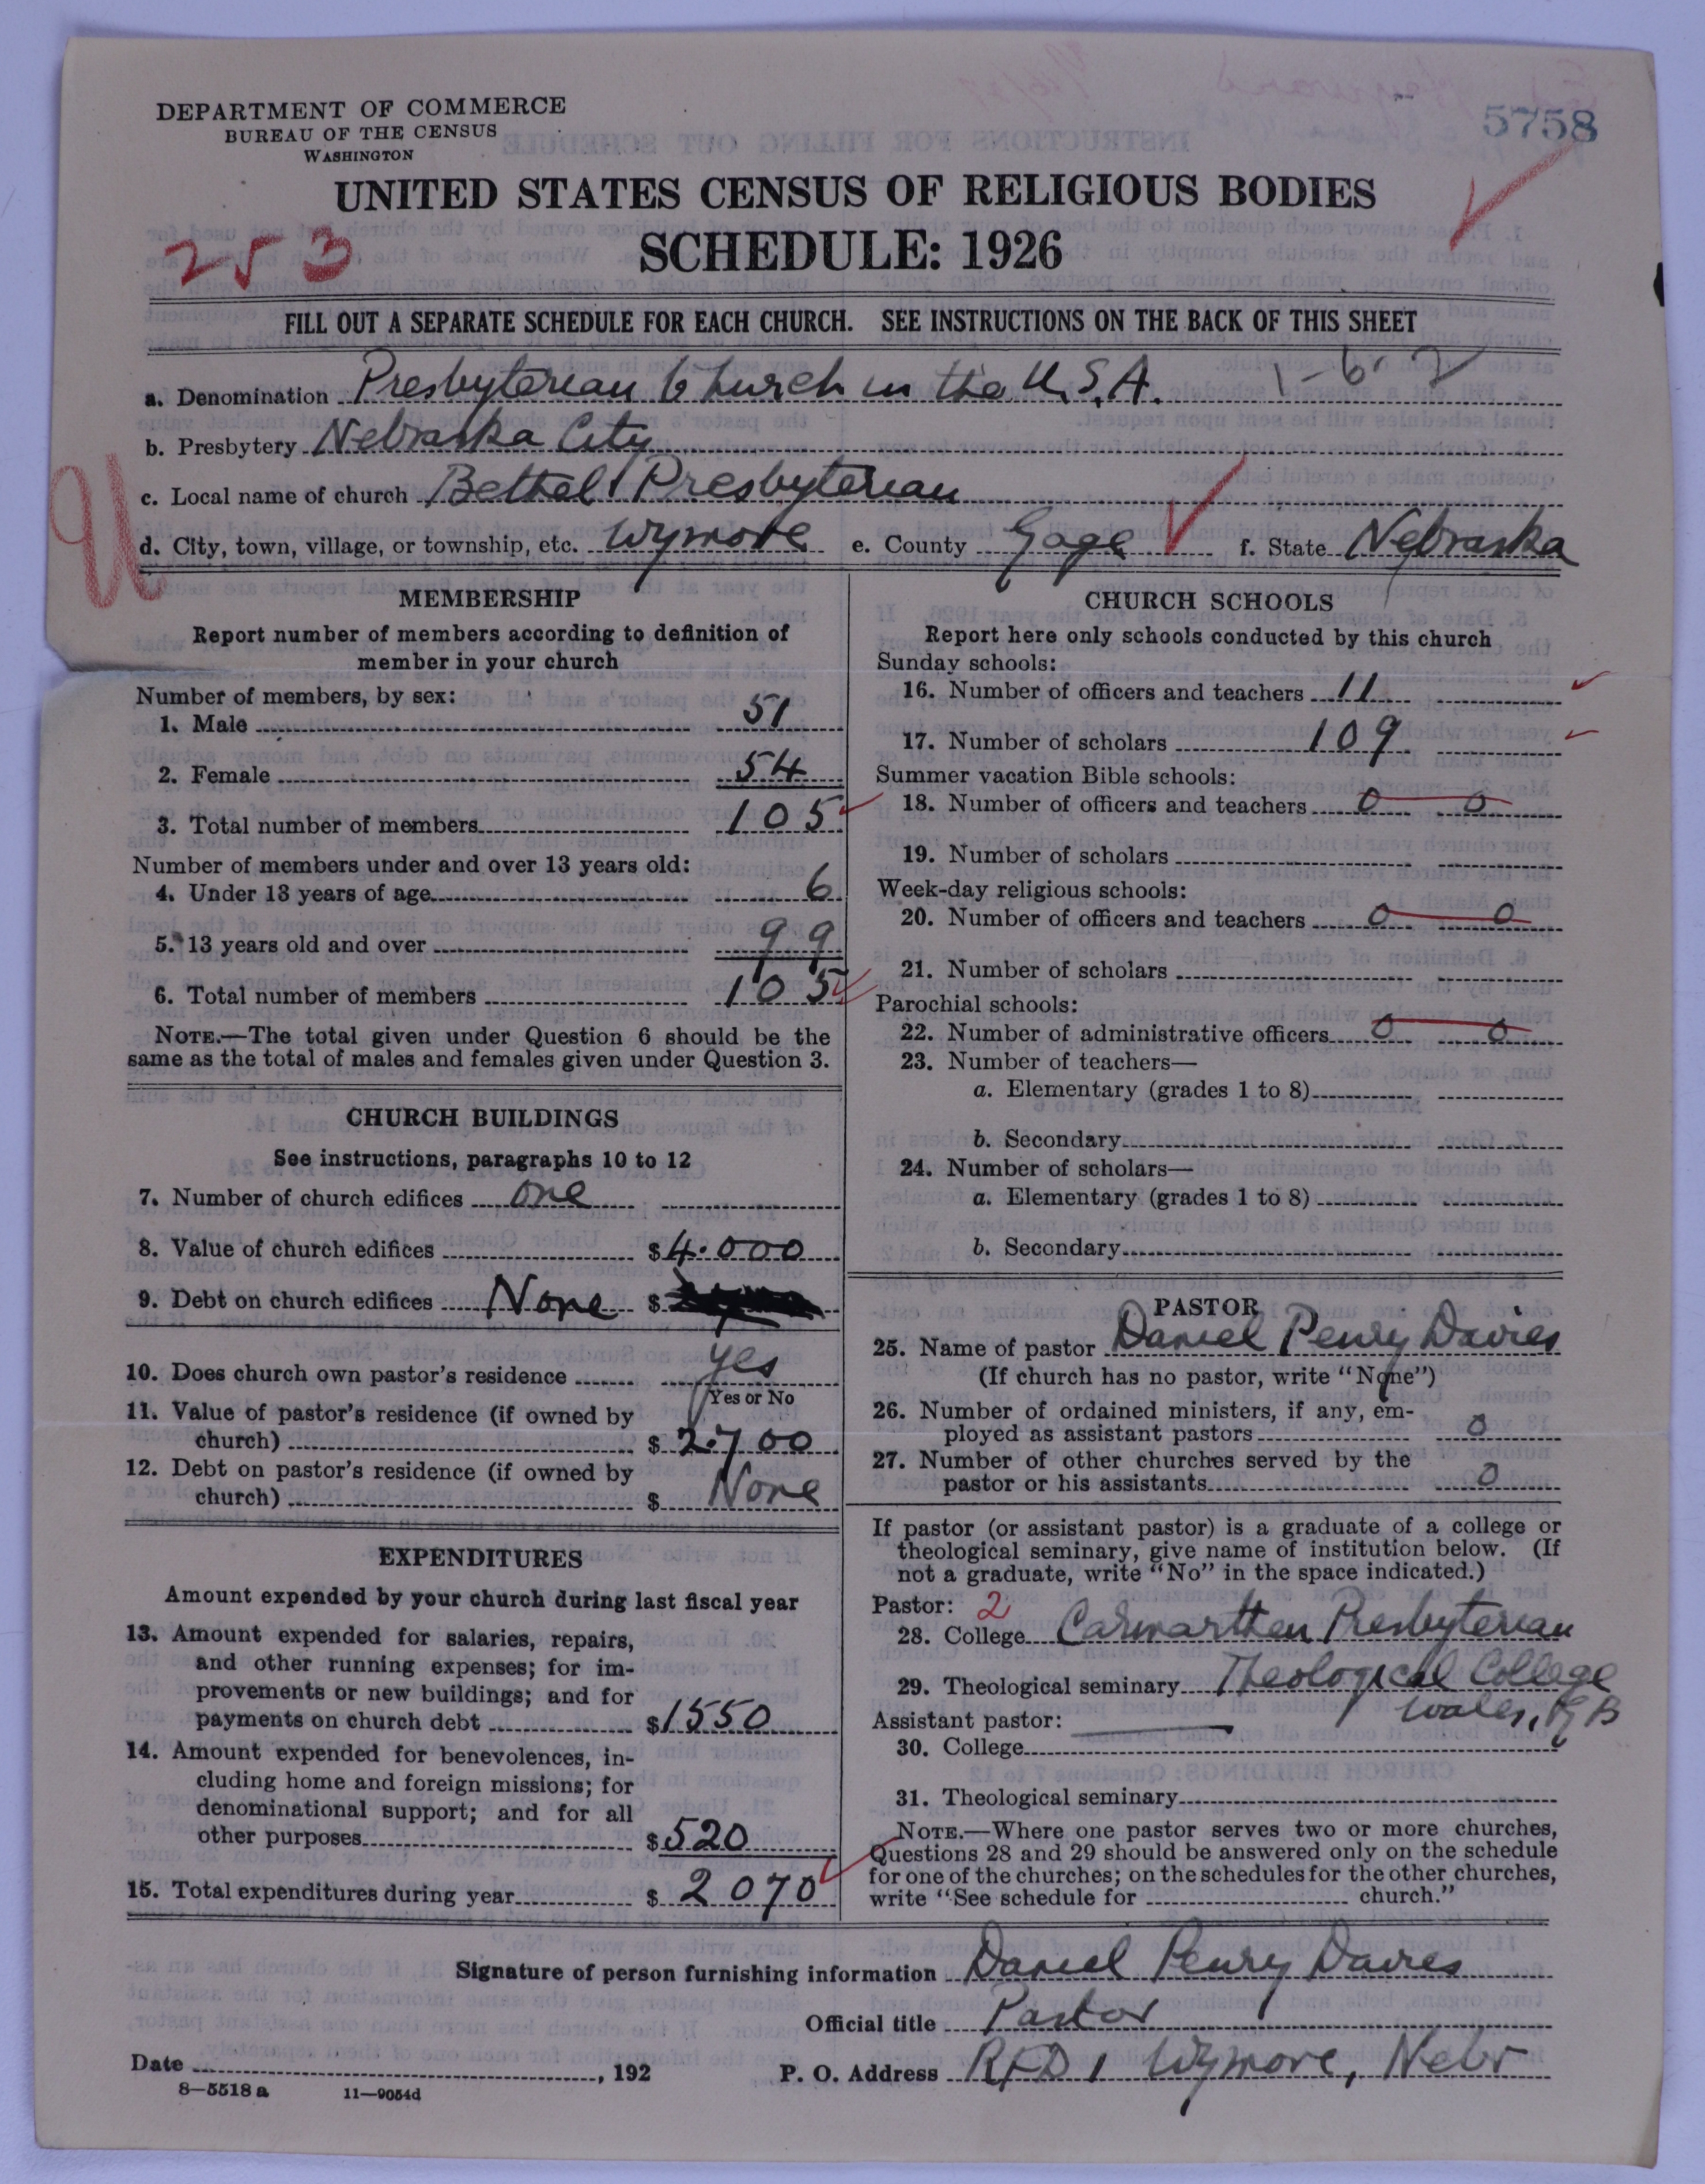 5758
DEPARTMENT OF COMMERCE
BUREAU OF THE CENSUS
WASHINGTON
UNITED STATES CENSUS OF RELIGIOUS BODIES
253
SCHEDULE: 1926
FILL OUT A SEPARATE SCHEDULE FOR EACH CHURCH. SEE INSTRUCTIONS ON THE BACK OF THIS SHEET
a. Denomination Presbyterian Church in the U.S.A. 1-6-2
b. Presbytery Nebraska City
c. Local name of church Bethel Presbyterian
d. City, town, village, or township, etc. Wymore e. County Gage f. State Nebraska
MEMBERSHIP
Report number of members according to definition of
member in your church
Number of members, by sex:
1. Male 51
2. Female 54
3. Total number of members 105
Number of members under and over 13 years old:
4. Under 13 years of age 6
5. 13 years old and over 99
6. Total number of members 105
NOTE.—The total given under Question 6 should be the
same as the total of males and females given under Question 3.
CHURCH BUILDINGS
See instructions, paragraphs 10 to 12
7. Number of church edifices one
8. Value of church edifices $4.000
9. Debt on church edifices None $
10. Does church own pastor's residence yes
Yes or No
11. Value of pastor's residence (if owned by
church) $2.700
12. Debt on pastor's residence (if owned by
church) $ None
EXPENDITURES
Amount expended by your church during last fiscal year
13. Amount expended for salaries, repairs,
and other running expenses; for im-
provements or new buildings; and for
payments on church debt $1550
14. Amount expended for benevolences, in-
cluding home and foreign missions; for
denominational support; and for all
other purposes $520
15. Total expenditures during year $2070
CHURCH SCHOOLS
Report here only schools conducted by this church
Sunday schools:
16. Number of officers and teachers 11
17. Number of scholars 109
Summer vacation Bible schools:
18. Number of officers and teachers 0 0
19. Number of scholars
Week-day religious schools:
20. Number of officers and teachers 0 0
21. Number of scholars
Parochial schools:
22. Number of administrative officers 0 0
23. Number of teachers—
a. Elementary (grades 1 to 8)
b. Secondary
24. Number of scholars—
a. Elementary (grades 1 to 8)
b. Secondary
PASTOR
25. Name of pastor Daniel Penry Davies
(If church has no pastor, write "None")
26. Number of ordained ministers, if any, em-
ployed as assistant pastors 0
27. Number of other churches served by the
pastor or his assistants 0
If pastor (or assistant pastor) is a graduate of a college or
theological seminary, give name of institution below. (If
not a graduate, write "No" in the space indicated.)
Pastor: 2
28. College Carmarthen Presbyterian
29. Theological seminary Theological College
Wales, G B
Assistant pastor:
30. College
31. Theological seminary
NOTE.—Where one pastor serves two or more churches,
Questions 28 and 29 should be answered only on the schedule
for one of the churches; on the schedules for the other churches,
write "See schedule for church."
Signature of person furnishing information Daniel Penry Davies
Official title Pastor
Date , 192 P. O. Address RFD 1 Wymore, Nebr
8—5518 a 11—9054d